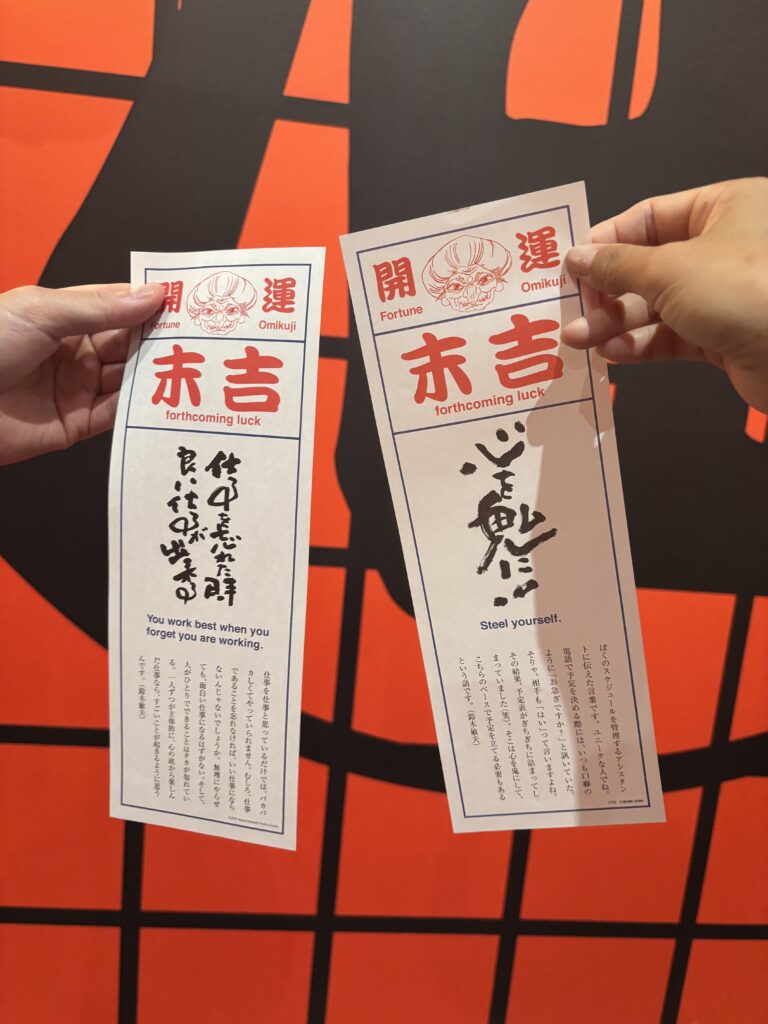 開運
Fortune Omikuji
末吉
forthcoming luck
仕事を忘れた時
良い仕事が
出来る
You work best when you
forget you are working.
仕事を仕事と思っているだけでは、バカバ
カしくてやっていられません。むしろ、仕事
であることを忘れなければ、いい仕事になら
ないんじゃないでしょうか。無理にやらせ
ても、面白い仕事になるはずがない。そして、
人がひとりでできることはタカが知れてい
る。一人ずつが主体的に、心の底から楽しん
だ仕事なら、すごいことが起きるように思う
んです。(鈴木敏夫)
開運
Fortune Omikuji
末吉
forthcoming luck
心を鬼に!!
Steel yourself.
ぼくのスケジュールを管理するアシスタン
トに伝えた言葉です。ユニークな人でね。
電話で予定を決める際には、いつも口癖の
ように「お急ぎですか?」と訊いていた。
そりゃ、相手も「はい」って言いますよね。
その結果、予定表がぎちぎちに詰まってし
まっていました(笑)。そこは心を鬼にして、
こちらのペースで予定を立てる必要もある
という話です。(鈴木敏夫)